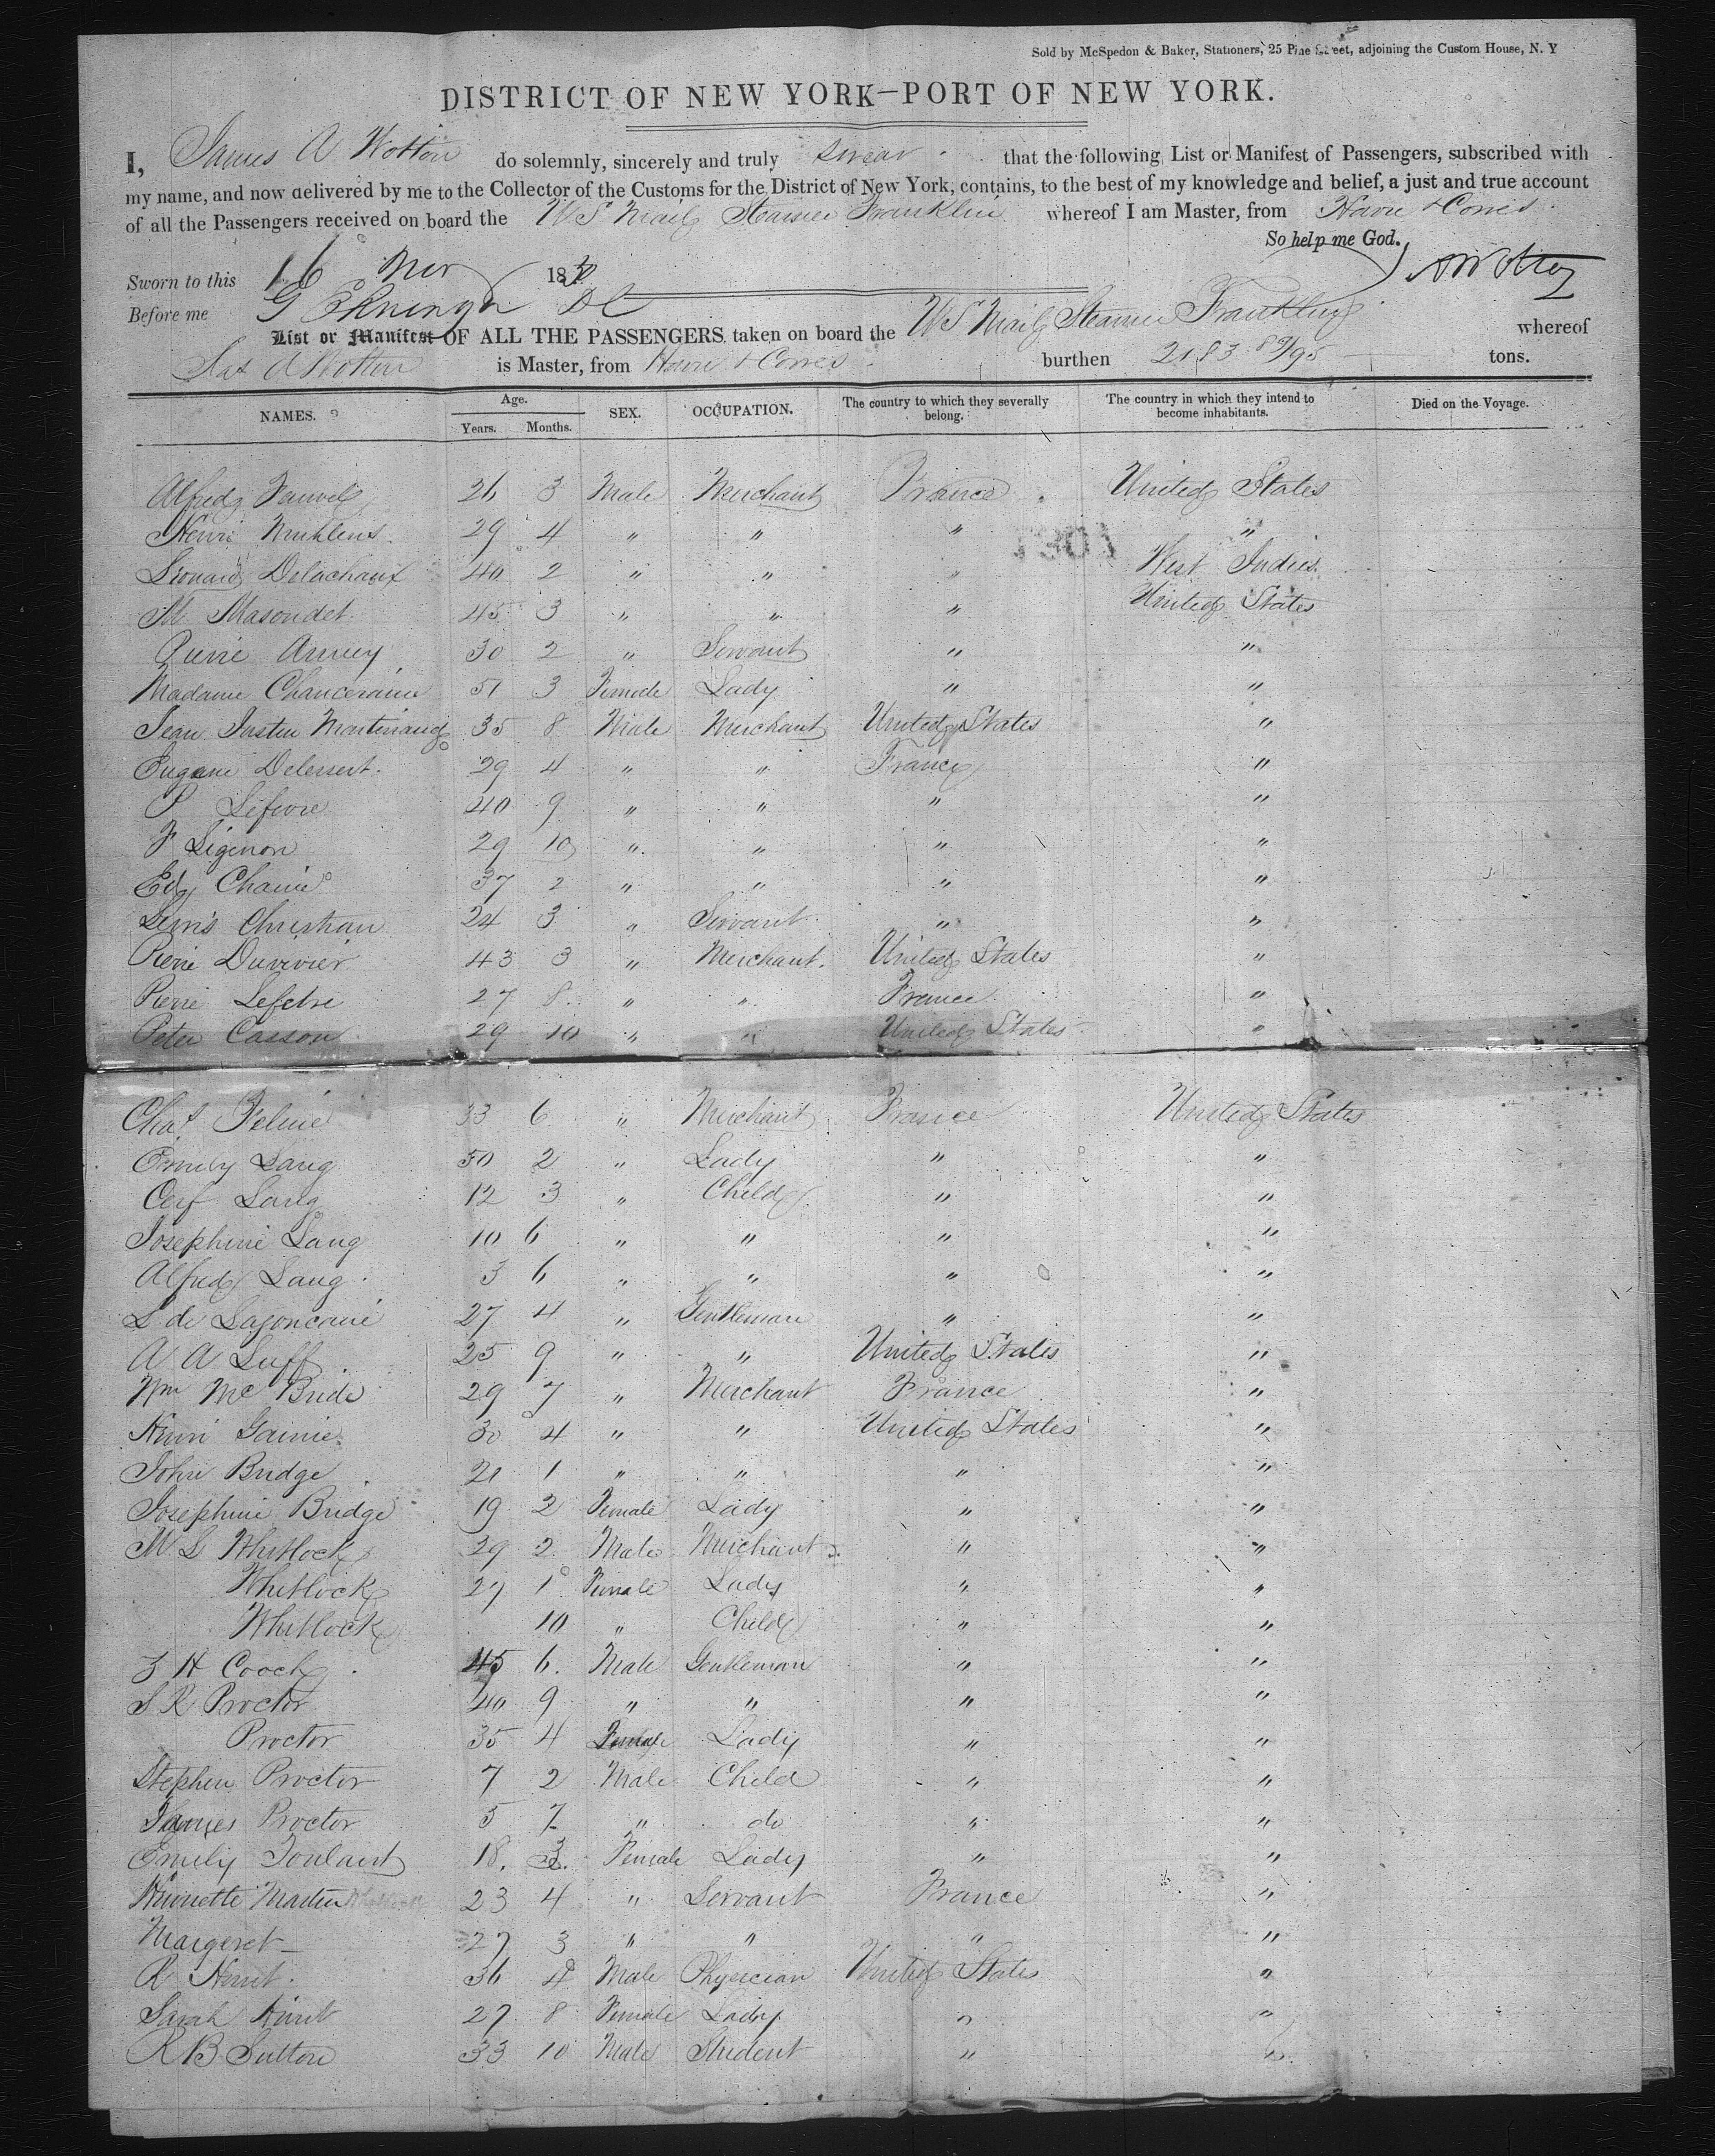 Sold by McSpedon & Baker, Stationers, 25 Pine Street, adjoining the Custom House, N. Y
DISTRICT OF NEW YORK—PORT OF NEW YORK.
I, James A Wotton do solemnly, sincerely and truly swear that the following List or Manifest of Passengers, subscribed with
my name, and now delivered by me to the Collector of the Customs for the District of New York, contains, to the best of my knowledge and belief, a just and true account
of all the Passengers received on board the US Mail Steamer Franklin whereof I am Master, from Havre & Cowes
So help me God.
Sworn to this 16 Nov 1850
Before me
List or Manifest OF ALL THE PASSENGERS taken on board the US Mail Steamer Franklin whereof
Jas A Wotton is Master, from Havre & Cowes burthen 2183 89/95 tons.
NAMES. Age. Years. Months. SEX. OCCUPATION. The country to which they severally belong. The country in which they intend to become inhabitants. Died on the Voyage.
Alfred Fauvel 26 3 Male Merchant France United States
Henri Muhlens 29 4 " " " "
Leonard Delachaux 40 2 " " " West Indies
M Masondet 45 3 " " " United States
Pierre 30 2 " Servant " "
Madame Chanceraine 51 3 Female Lady " "
Jean Justin Martinaud 35 8 Male Merchant United States "
Eugene Delessert 29 4 " " France "
P Lefevre 40 9 " " " "
F Ligenon 29 10 " " " "
Ed 37 2 " " " "
Lewis Christian 24 3 " Servant " "
Pierre Duvivier 43 3 " Merchant United States "
Pierre Lefebre 27 8 " " France "
Peter Casson 29 10 " " United States "
Chas 33 6 " Merchant France United States
Emily Lang 50 2 " Lady " "
Cerf Lang 12 3 " Child " "
Josephine Lang 10 6 " " " "
Alfred Lang 3 6 " " " "
L de 27 4 " Gentleman " "
A A Luff 25 9 " " United States "
Wm Mc Bride 29 7 " Merchant France "
Henri 30 4 " " United States "
John Bridge 21 1 " " " "
Josephine Bridge 19 2 Female Lady " "
M L Whitlock 29 2 Male Merchant " "
Whitlock 27 1 Female Lady " "
Whitlock 10 " Child " "
Z H Cooch 45 6 Male Gentleman " "
S R Proctor 40 9 " " " "
Proctor 35 4 Female Lady " "
Stephen Proctor 7 2 Male Child " "
James Proctor 5 7 " do " "
Emily 18 3 Female Lady " "
Martin 23 4 " Servant France "
Margeret 27 3 " " " "
R Hunt 36 4 Male Physician United States "
Sarah Hunt 27 8 Female Lady " "
R B Sutton 33 10 Male Student " "